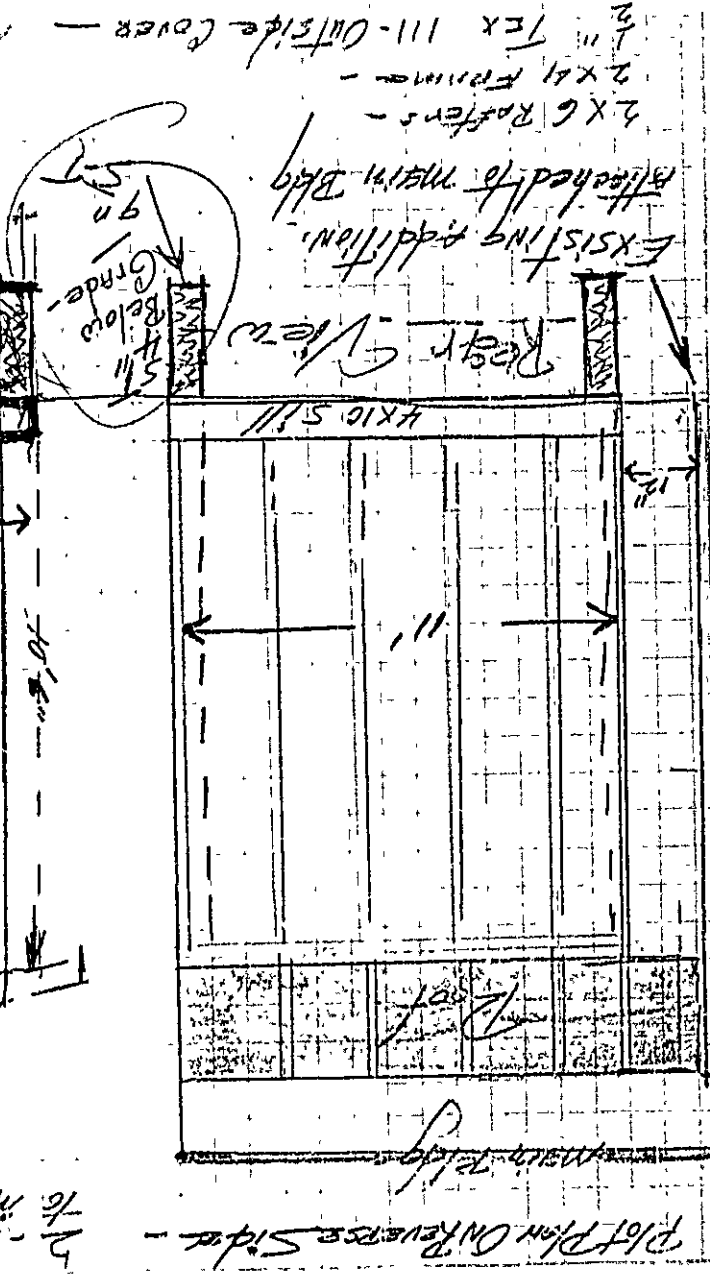 Plot Plan On Reverse Side -
Main Bldg
Roof
11'
12"
4x10 Sill
Roof View
54"
Below
Grade-
Exsisting Addition.
Attached to main Bldg
2x6 Rafters -
2x4 Frame -
1/2" Tex 111 - Outside Cover -